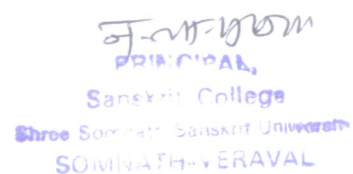 PRINCIPAL,
Sanskrit College
Shree Somnath Sanskrit University
SOMNATH-VERAVAL